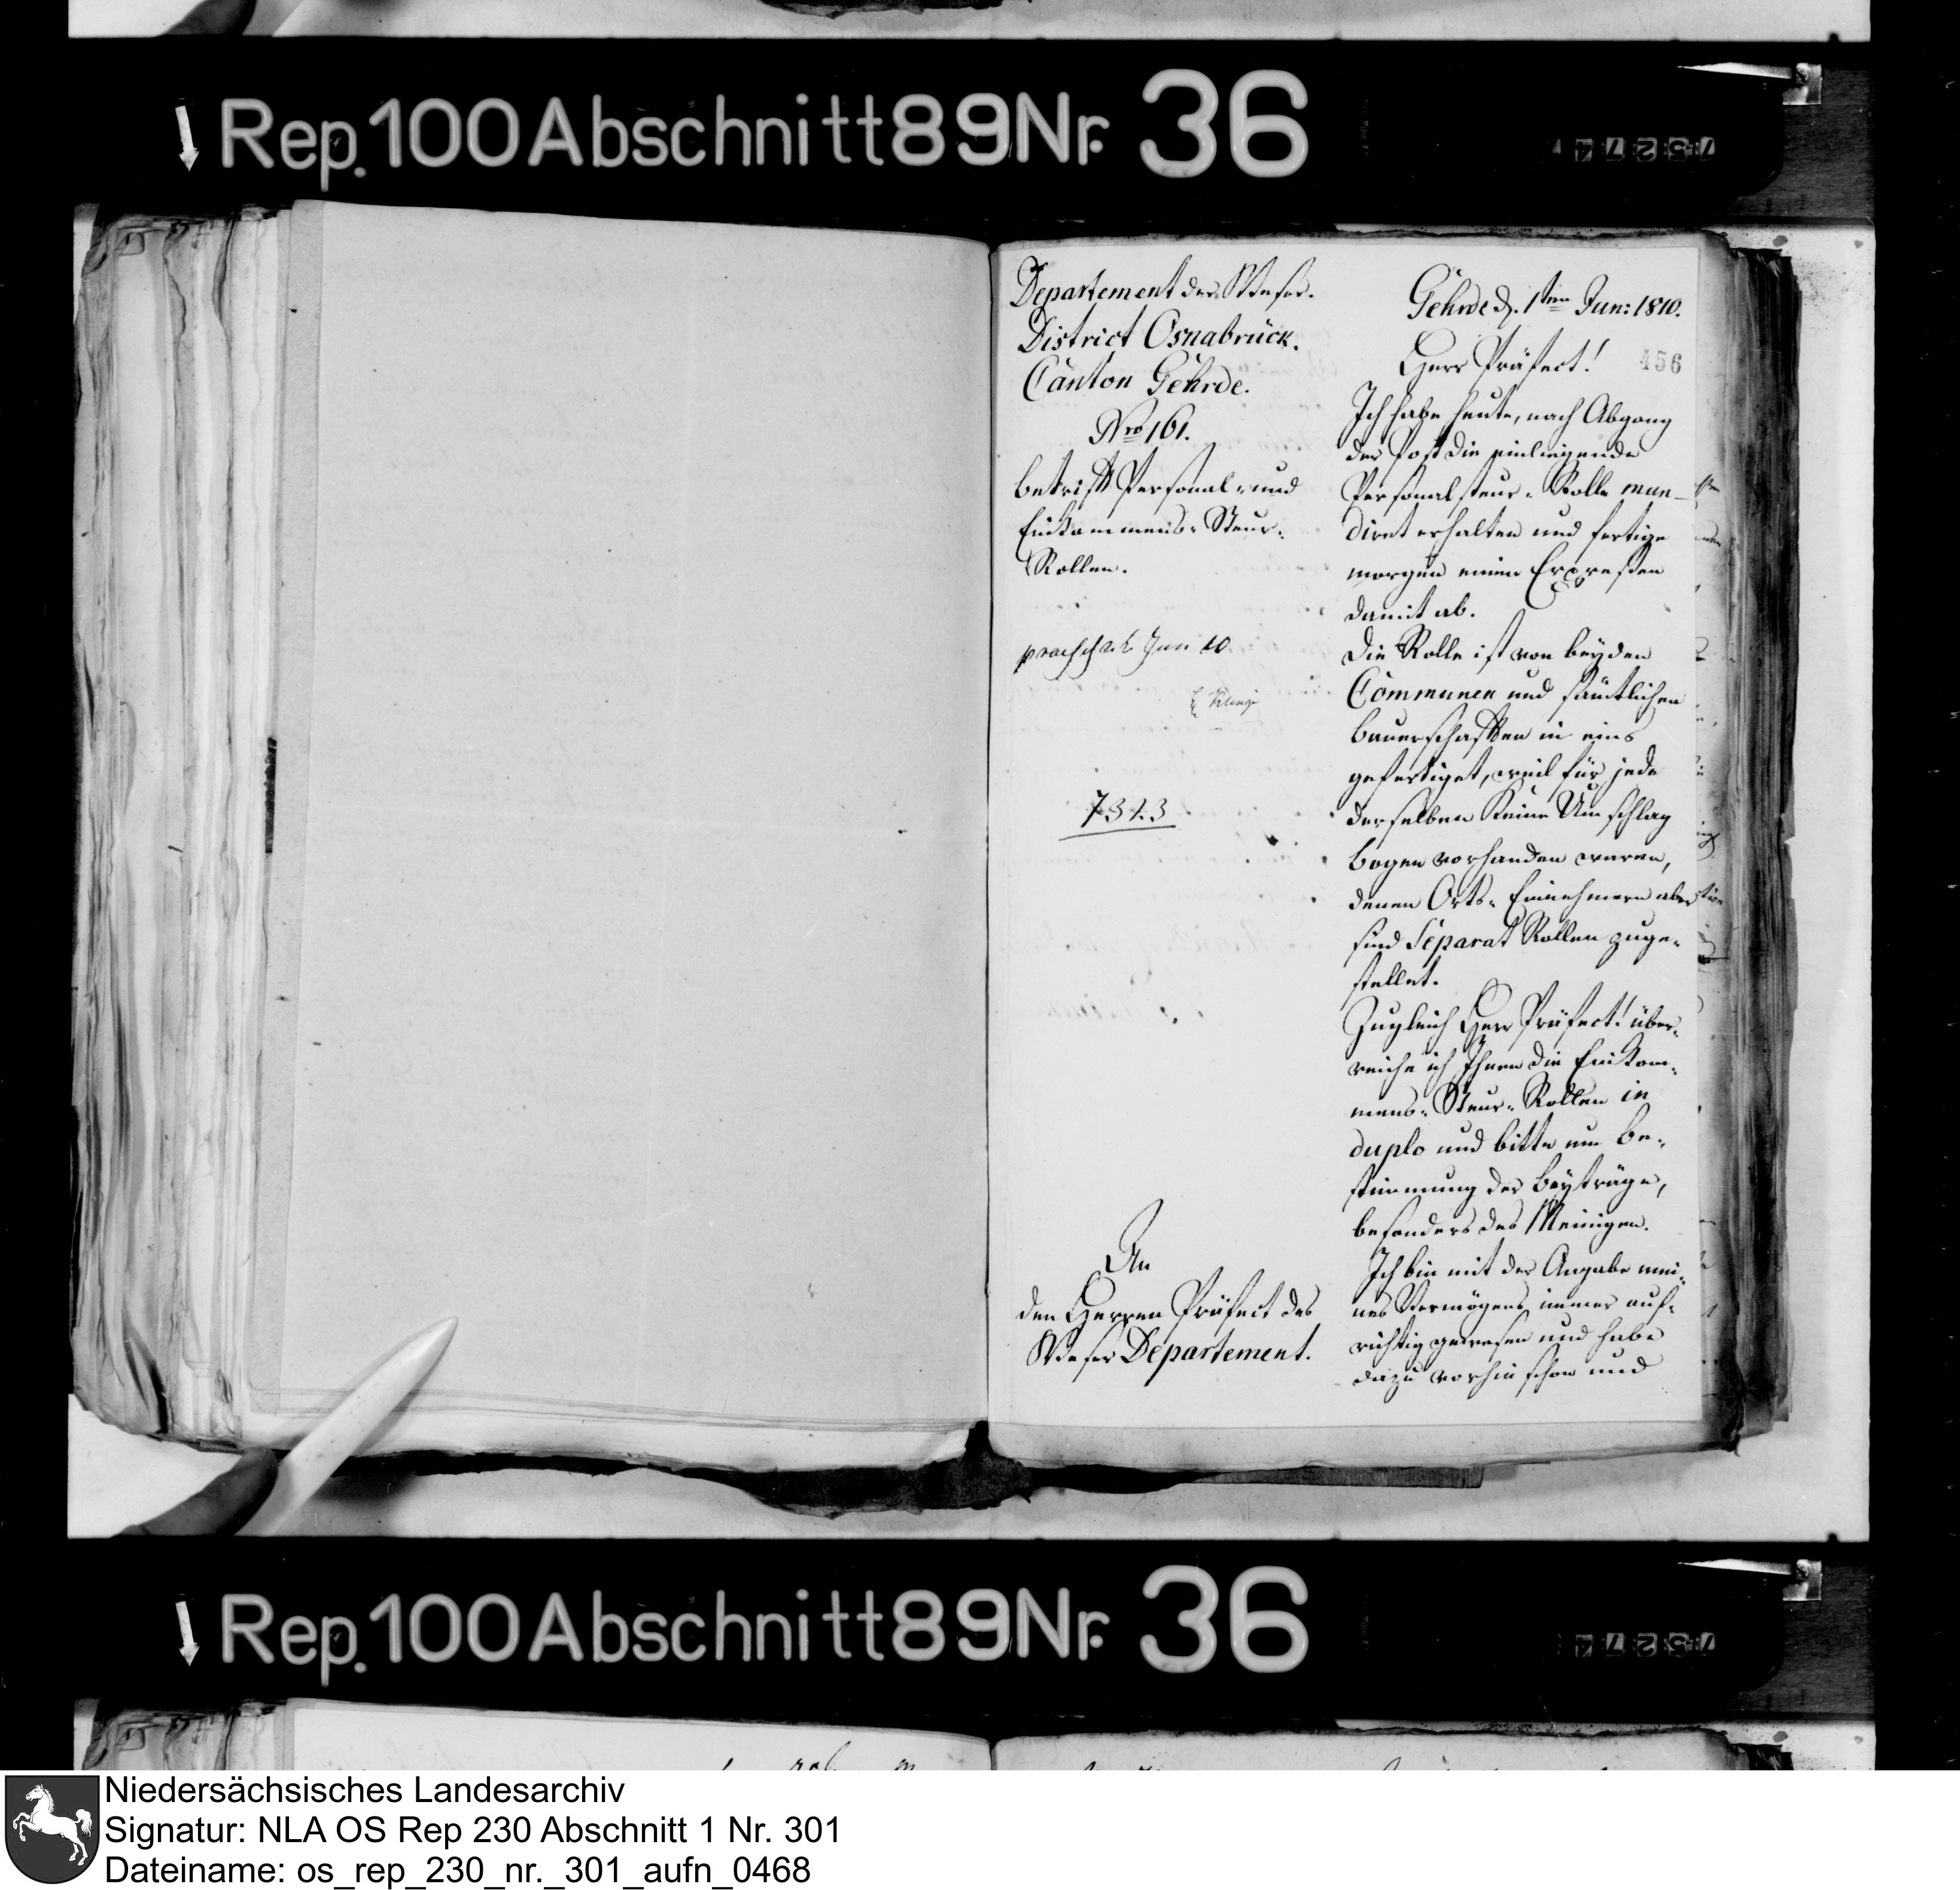 Rep. 100 Abschnitt 89 Nr. 36
Departement der Weser.
District Osnabrück.
Canton Gehrde.
Nro 161.
betrifft Personal- und
Einkommens-Steur-
Rollen.
Jun 10
7323
An
den Herren Präfect des
Weser Departement.
Gehrde d. 1ten Jun: 1810.
Herr Präfect!
456
Ich habe heute, nach Abgang
der Post die einliegende
Personalsteur-Rolle mun-
diret erhalten und fertige
morgen einen Expressen
damit ab.
Die Rolle ist von beyden
Communen und sämtlichen
Bauerschafften in eins
gefertiget, weil für jede
derselben keine Umschlag
bogen vorhanden waren,
denen Orts-Einnehmern aber
sind Separat Rollen zuge-
stellet.
Zugleich Herr Präfect! über-
reiche ich Ihnen die Einkom-
mens-Steur-Rollen in
duplo und bitte um Be-
stimmung der Beyträge,
besonders des Meinigen.
Ich bin mit der Angabe mei-
nes Vermögens immer auf-
richtig gewesen und habe
dazu vorhin schon und
Rep. 100 Abschnitt 89 Nr. 36
Niedersächsisches Landesarchiv
Signatur: NLA OS Rep 230 Abschnitt 1 Nr. 301
Dateiname: os_rep_230_nr._301_aufn_0468